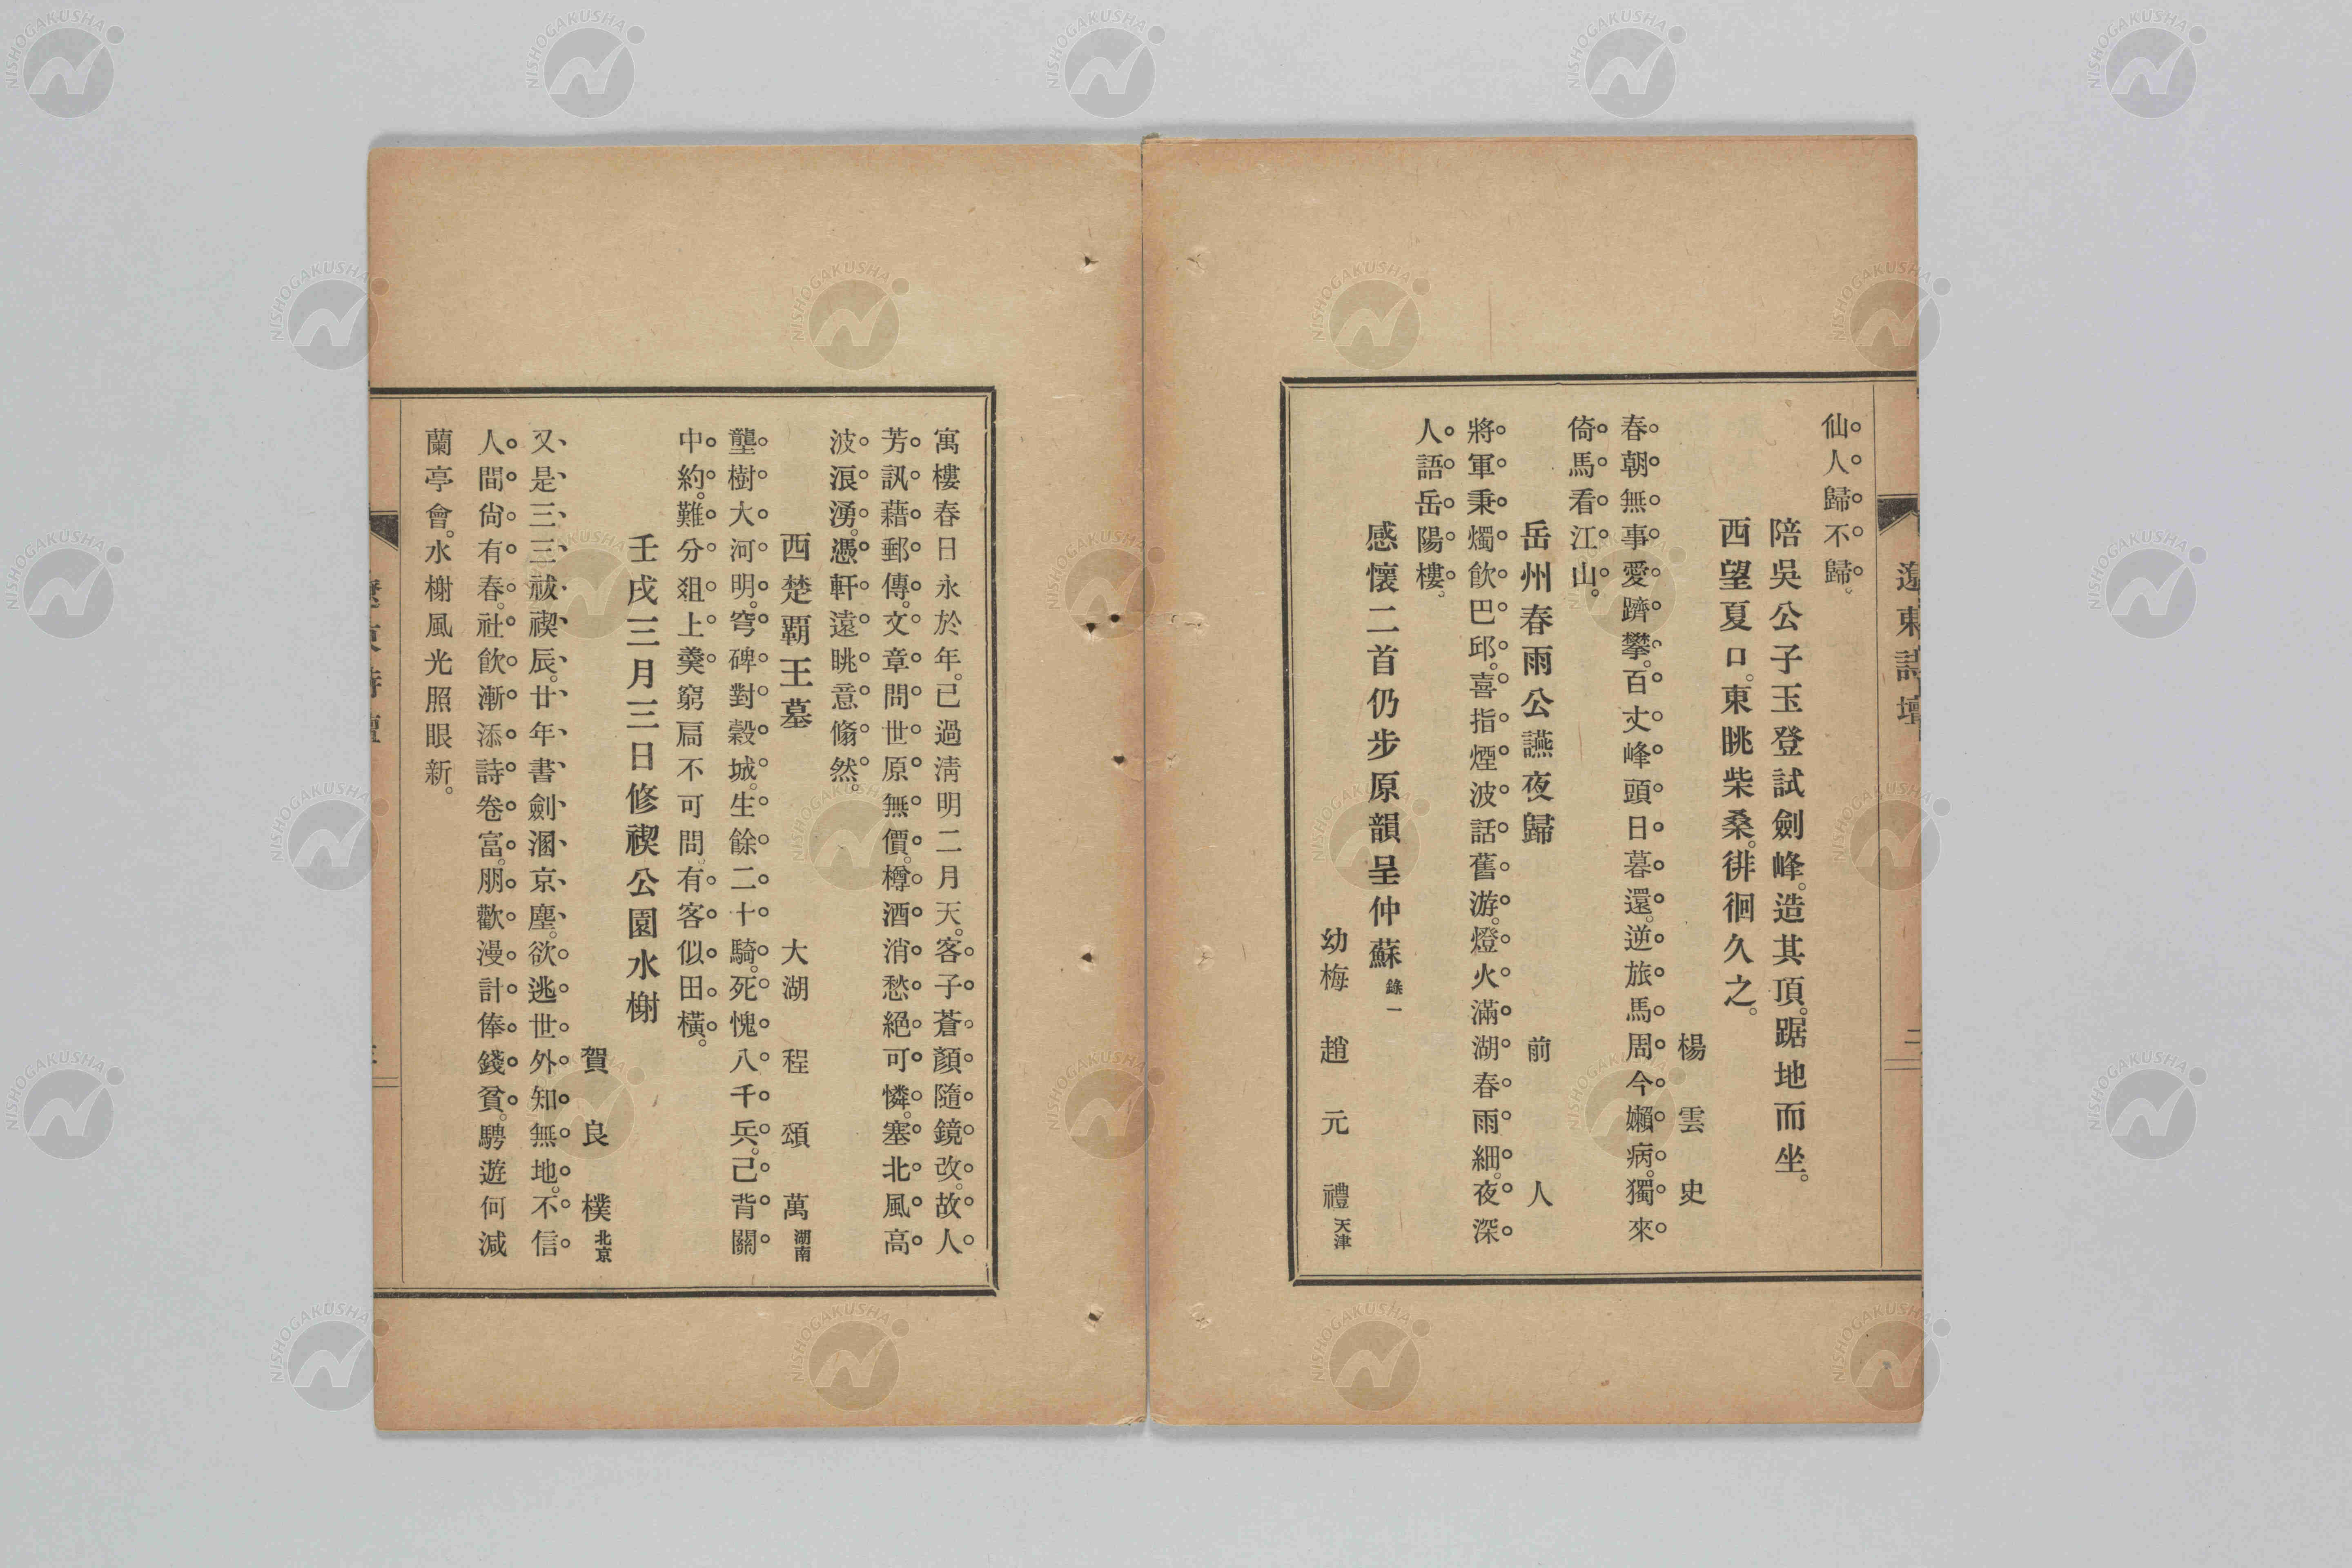 遼東詩壇
二
仙人歸不歸。
陪吳公子玉登試劍峰。造其頂。踞地而坐。
西望夏口。東眺柴桑。徘徊久之。
楊雲史
春朝無事愛躋攀。百丈峰頭日暮還。逆旅馬周今嬾病。獨來
倚馬看江山。
岳州春雨公讌夜歸
前人
將軍秉燭飲巴邱。喜指煙波話舊游。燈火滿湖春雨細。夜深
人語岳陽樓。
感懷二首仍步原韻呈仲蘇 錄一
幼梅 趙元禮 天津
寓樓春日永於年。已過淸明二月天。客子蒼顏隨鏡改。故人
芳訊藉郵傳。文章問世原無價。樽酒消愁絕可憐。塞北風高
波浪湧。憑軒遠眺意翛然。
西楚覇王墓
大湖 程頌萬 湖南
壟樹大河明。穹碑對穀城。生餘二十騎。死愧八千兵。己背關
中約。難分俎上羹。窮扃不可問。有客似田橫。
壬戌三月三日修禊公園水榭
賀良樸 北京
又是三三祓禊辰。廿年書劍溷京塵。欲逃世外知無地。不信
人間尙有春。社飮漸添詩卷富。朋歡漫計俸錢貧。騁遊何減
蘭亭會。水榭風光照眼新。
NISHOGAKUSHA